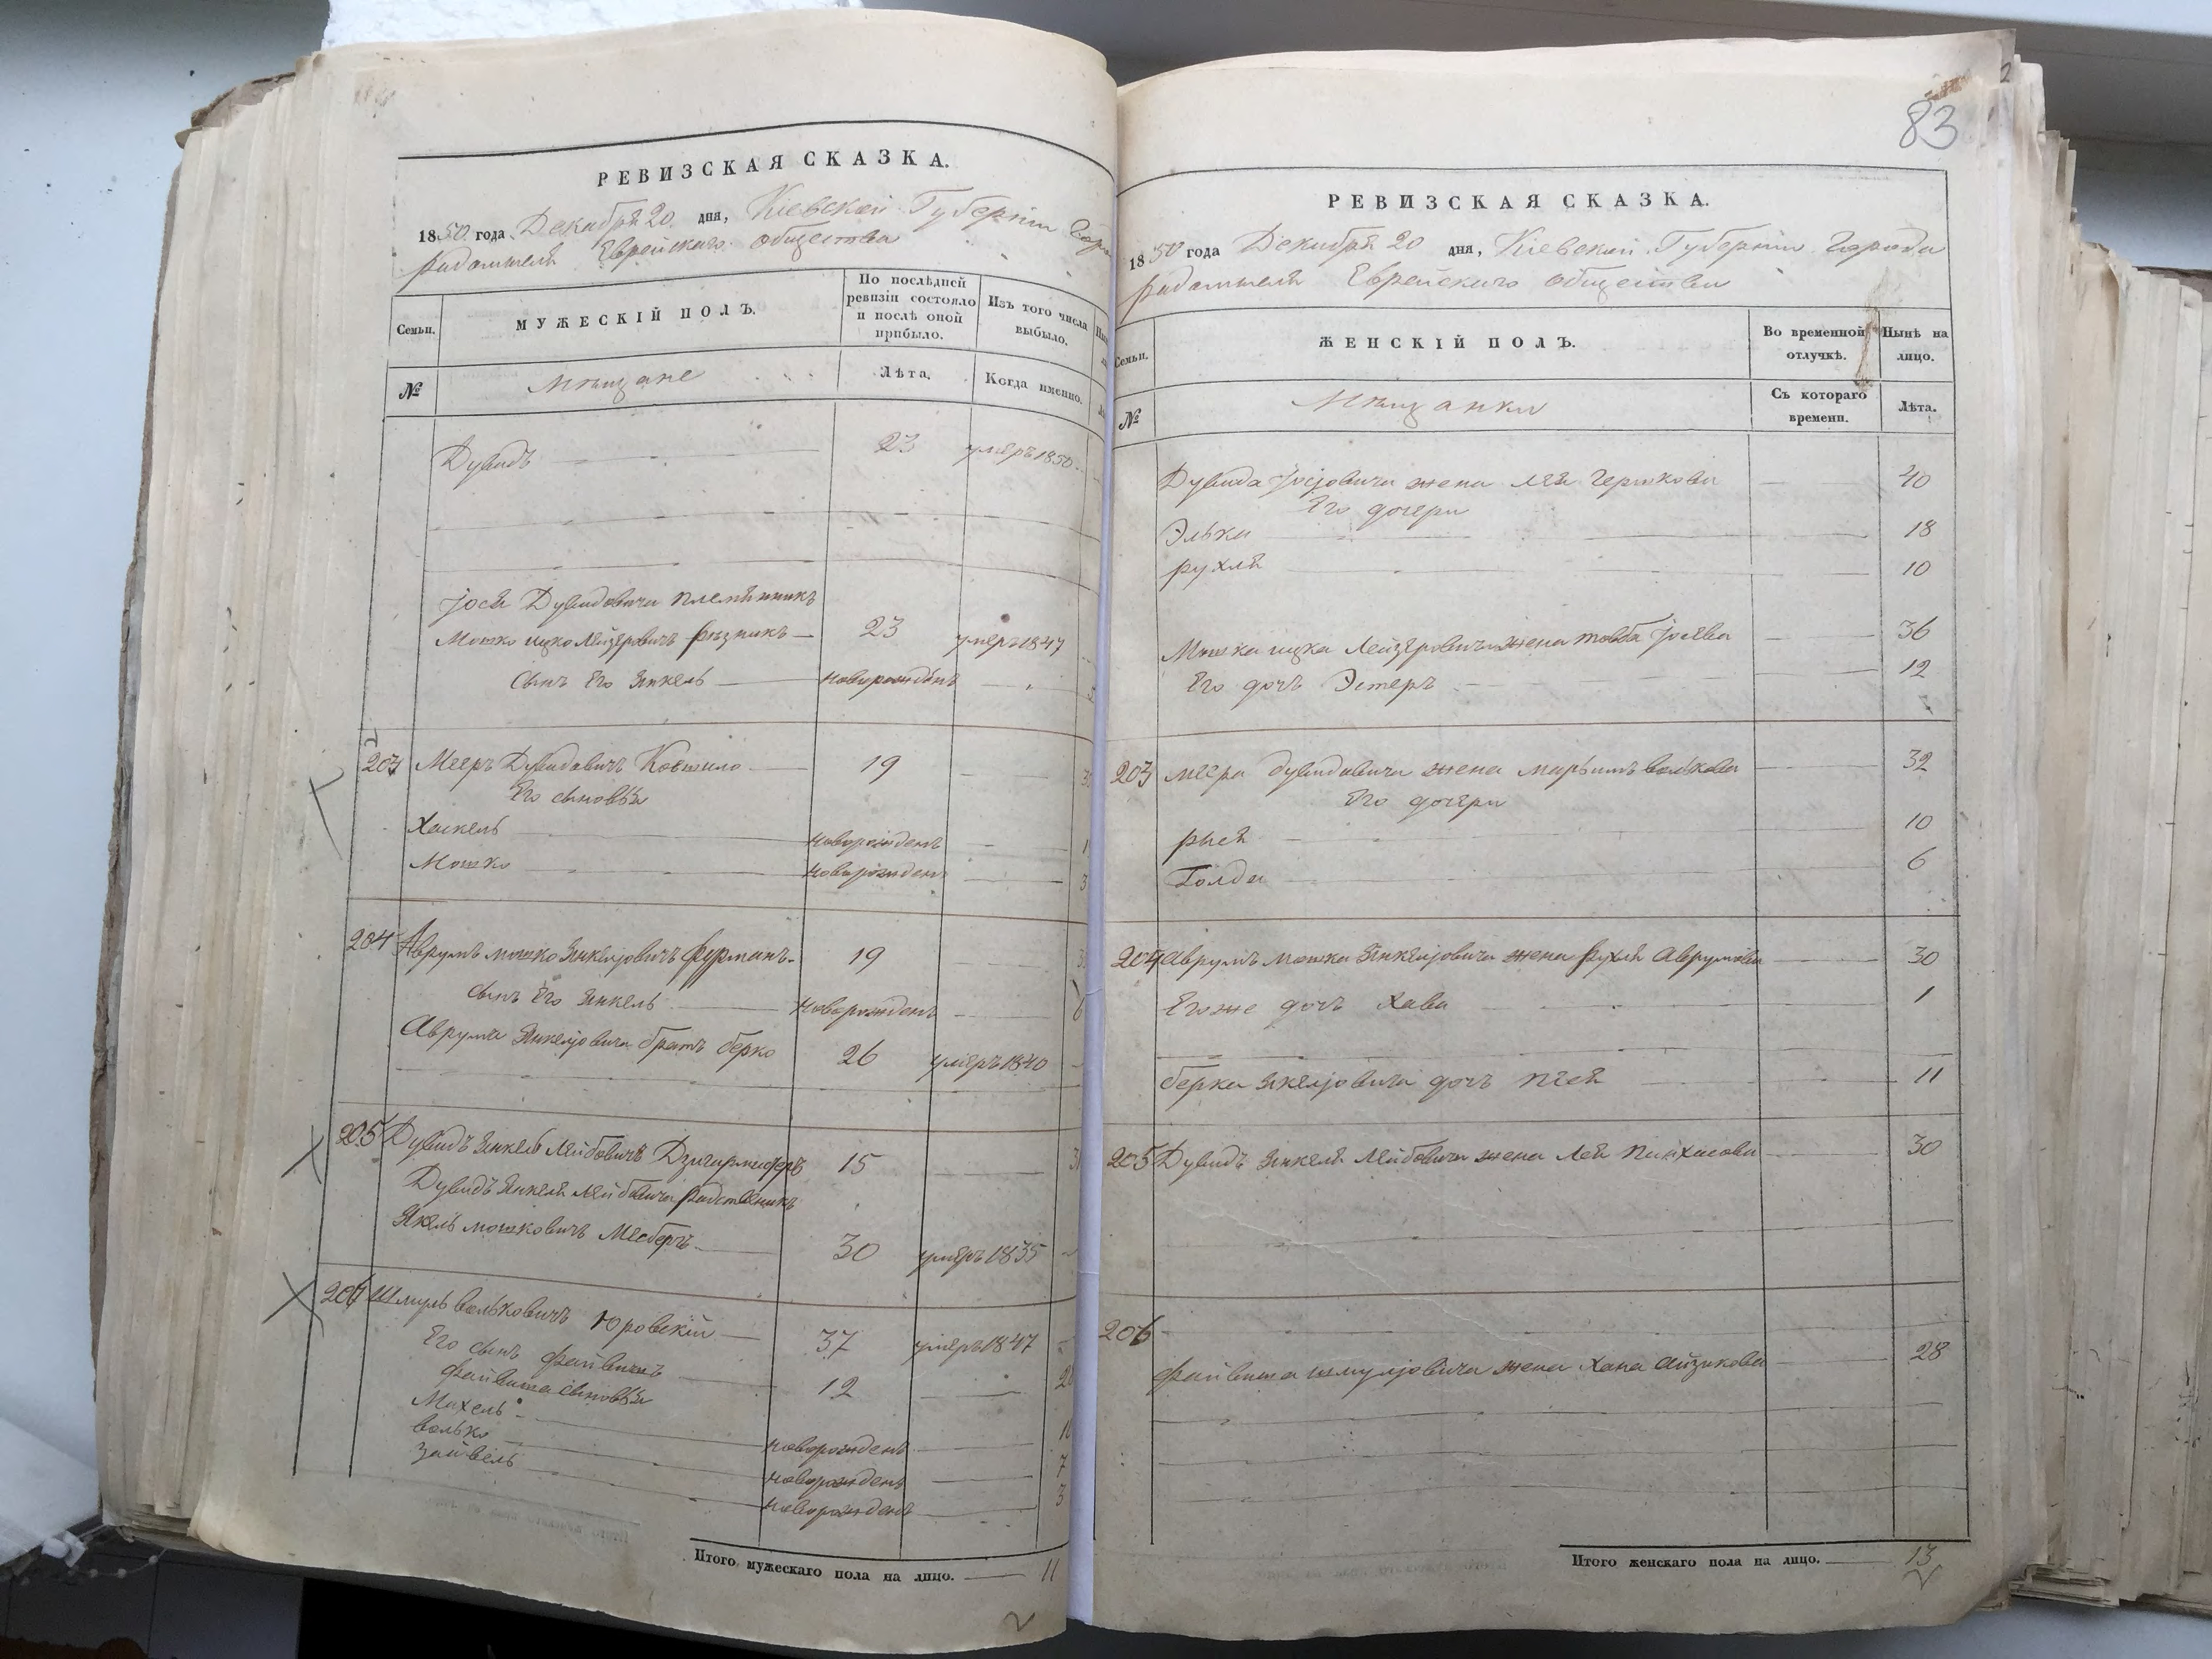 РЕВИЗСКАЯ СКАЗКА.
1850 года Декабря 20 дня, Кіевской Губерніи
Радомысля Еврейскаго общества
Семьи.
МУЖЕСКІЙ ПОЛЪ.
По послѣдней ревизіи состояло и послѣ оной прибыло.
Изъ того числа выбыло.
№
Мѣщане
Лѣта.
Когда именно.
Дувидъ 23 умеръ 1850
Іося Дувидовича племянникъ
Мошко ицко Лейзеровичъ Рѣзникъ 23 умеръ 1847
сынъ Его Янкель новорожденъ
203 Мееръ Дувидовичъ 19
Его сыновья
Хаскель новорожденъ 1
Мошко новорожденъ 3
204 Аврумъ мошко Янкелјовичъ фурманъ 19
сынъ Его Янкель новорожденъ 6
Аврума Янкелјовича братъ берко 26 умеръ 1840
205 Дувидъ Янкель Лейбовичъ 15
Дувидъ Янкеля Лейбовича родственникъ
Якель мошковичъ 30 умеръ 1835
206 Шмуль вольковичъ Юровскій 37 умеръ 1847
Его сынъ файвишъ 12
файвиша сыновья
Михель новорожденъ
волько новорожденъ 7
Зайвель новорожденъ 3
Итого мужескаго пола на лицо. 11
83
РЕВИЗСКАЯ СКАЗКА.
1850 года Декабря 20 дня, Кіевской Губерніи Города
Радомысля Еврейскаго общества
Семьи.
ЖЕНСКІЙ ПОЛЪ.
Во временной отлучкѣ.
Нынѣ на лицо.
№
Мѣщанки
Съ котораго времени.
Лѣта.
Дувида Іосјовича жена Лея Гершкова 40
Его дочери
Элька 18
рухля 10
Мошка ицка Лейзеровича жена товба Іосева 36
Его дочь Эстеръ 12
203 меера дувидовича жена марьимъ волькова 32
Его дочери
рыся 10
Голда 6
204 аврумъ мошка Янкелјовича жена Рухля Аврумова 30
Егоже дочь Хава 1
берка Якелјовича дочь песя 11
205 Дувидъ Янкеля Лейбовича жена Лея пинхасова 30
206
файвиша шмулјовича жена Хана айзикова 28
Итого женскаго пола на лицо. 13